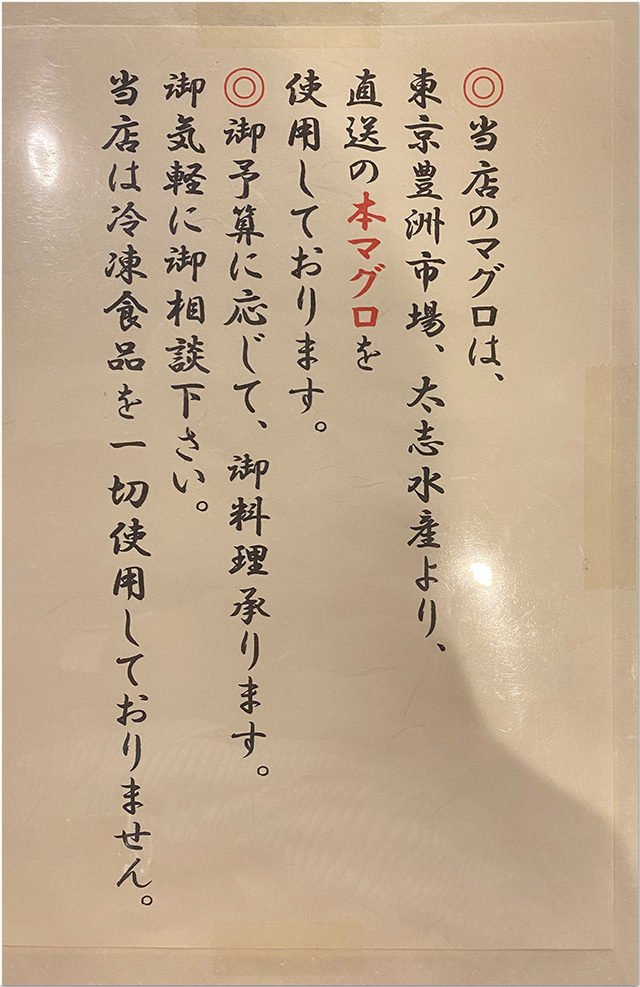 ◎当店のマグロは、
東京豊洲市場、太志水産より、
直送の本マグロを
使用しております。
◎御予算に応じて、御料理承ります。
御気軽に御相談下さい。
当店は冷凍食品を一切使用しておりません。